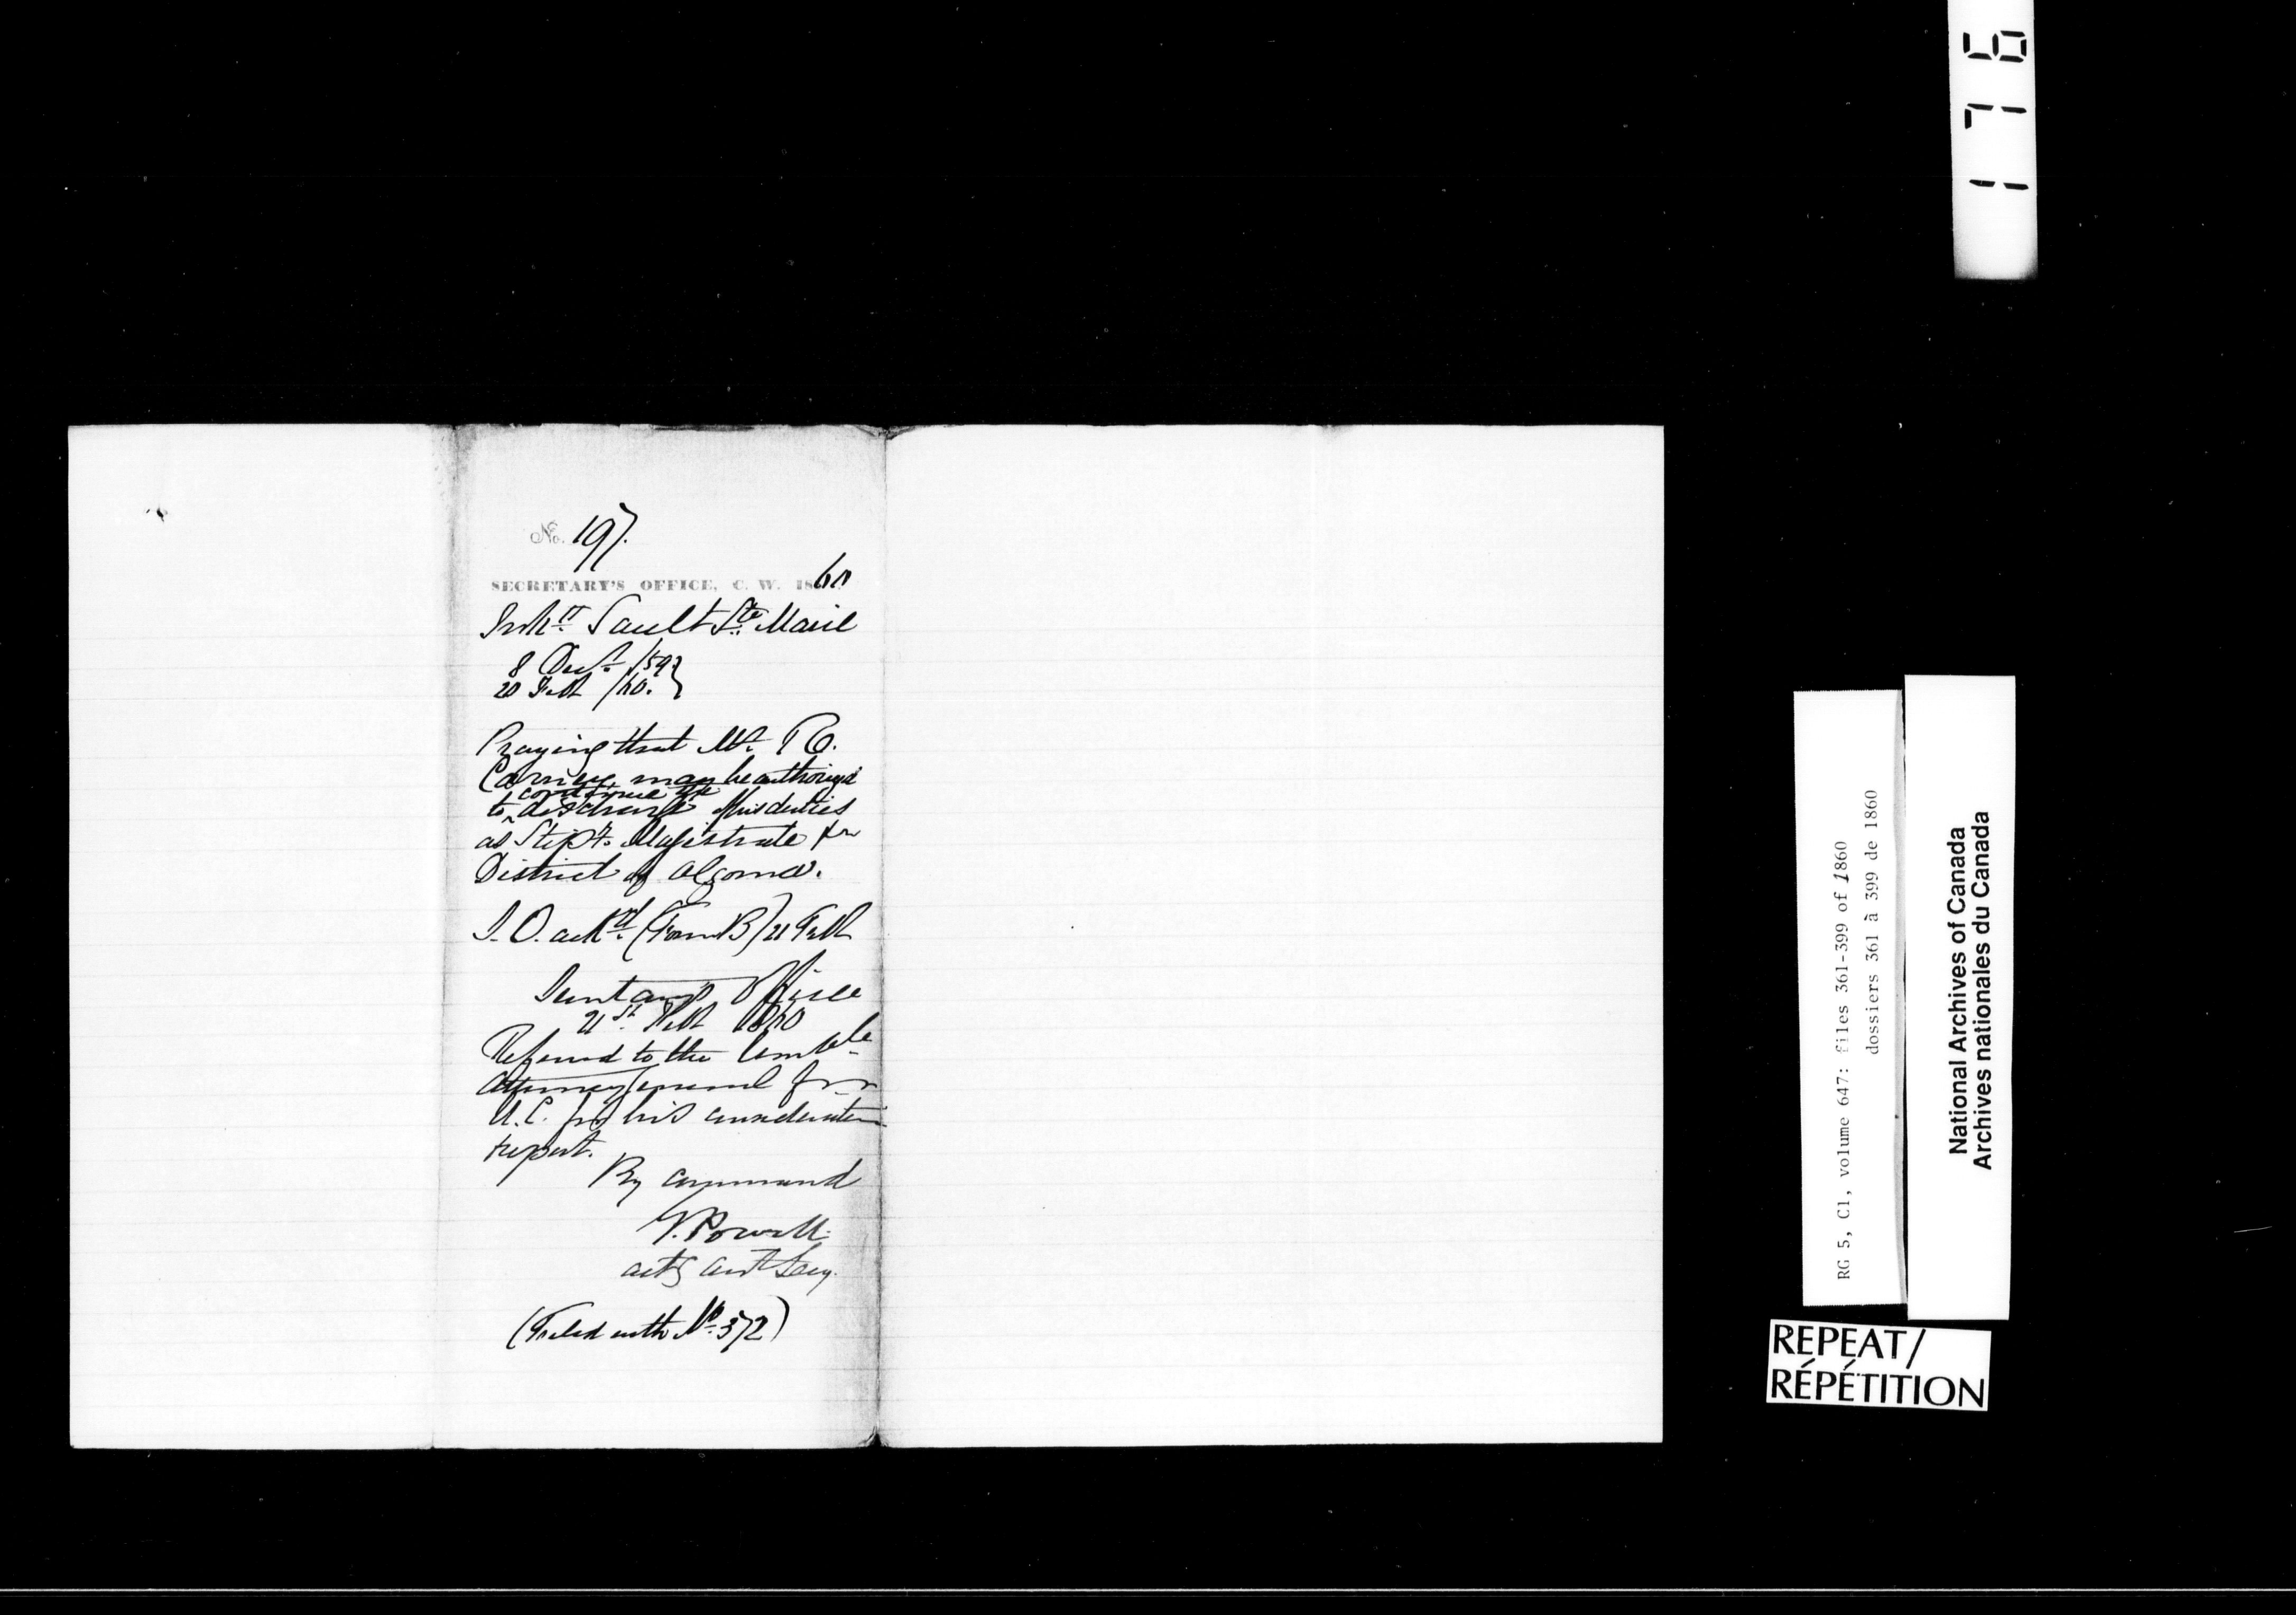 No. 197.
SECRETARY'S OFFICE, C. W. 1860
Inhts Sault Ste Marie
8 Decr /59 }
20 Feb /60. }
Praying that Mr
Carney may be authorized
to continue the discharge of his duties
as Stipy. Magistrate for
District of Algoma.
ackd (Form B) 21 Feb
Secretary's Office
21st Feb 1860
Referred to the Honble
Attorney General for
U.C. for his consideration
& report.
By command
Powell
actg asst Secy.
(Filed with No. 372)
176
RG 5, C1, volume 647: files 361-399 of 1860
dossiers 361 à 399 de 1860
National Archives of Canada
Archives nationales du Canada
REPEAT/
RÉPÉTITION